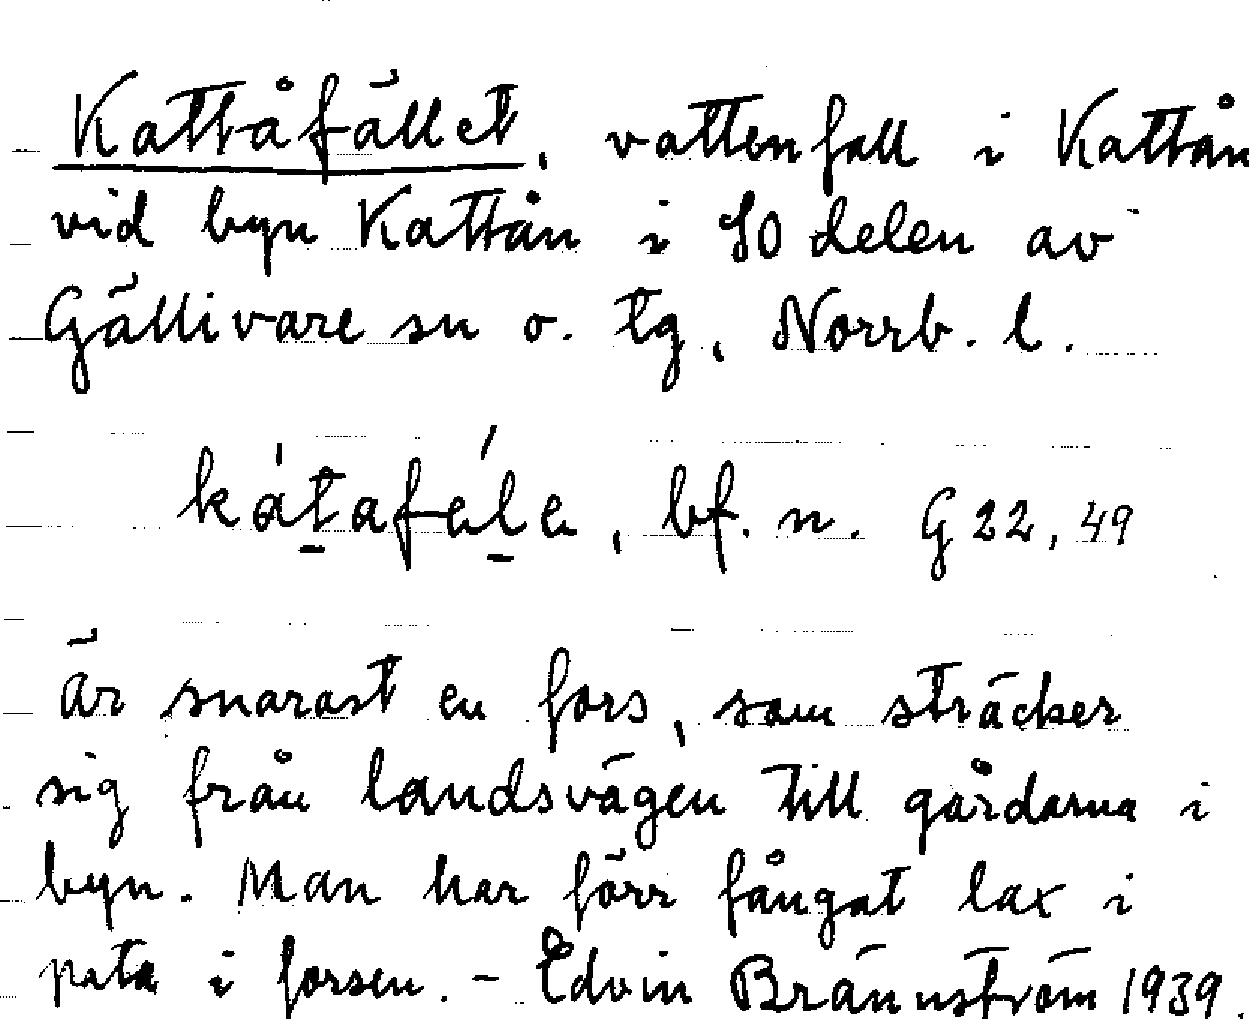 Kattåfället, vattenfall i Kattån
vid byn Kattån i SO delen av
Gällivare sn o. tg, Norrb. l.
kát̠afél̠e, bf. n. G 22, 49
är snarast en fors, som sträcker
sig från landsvägen till gårdarna i
byn. Man har förr fångat lax i
pata i forsen. - Edvin Brännström 1939.